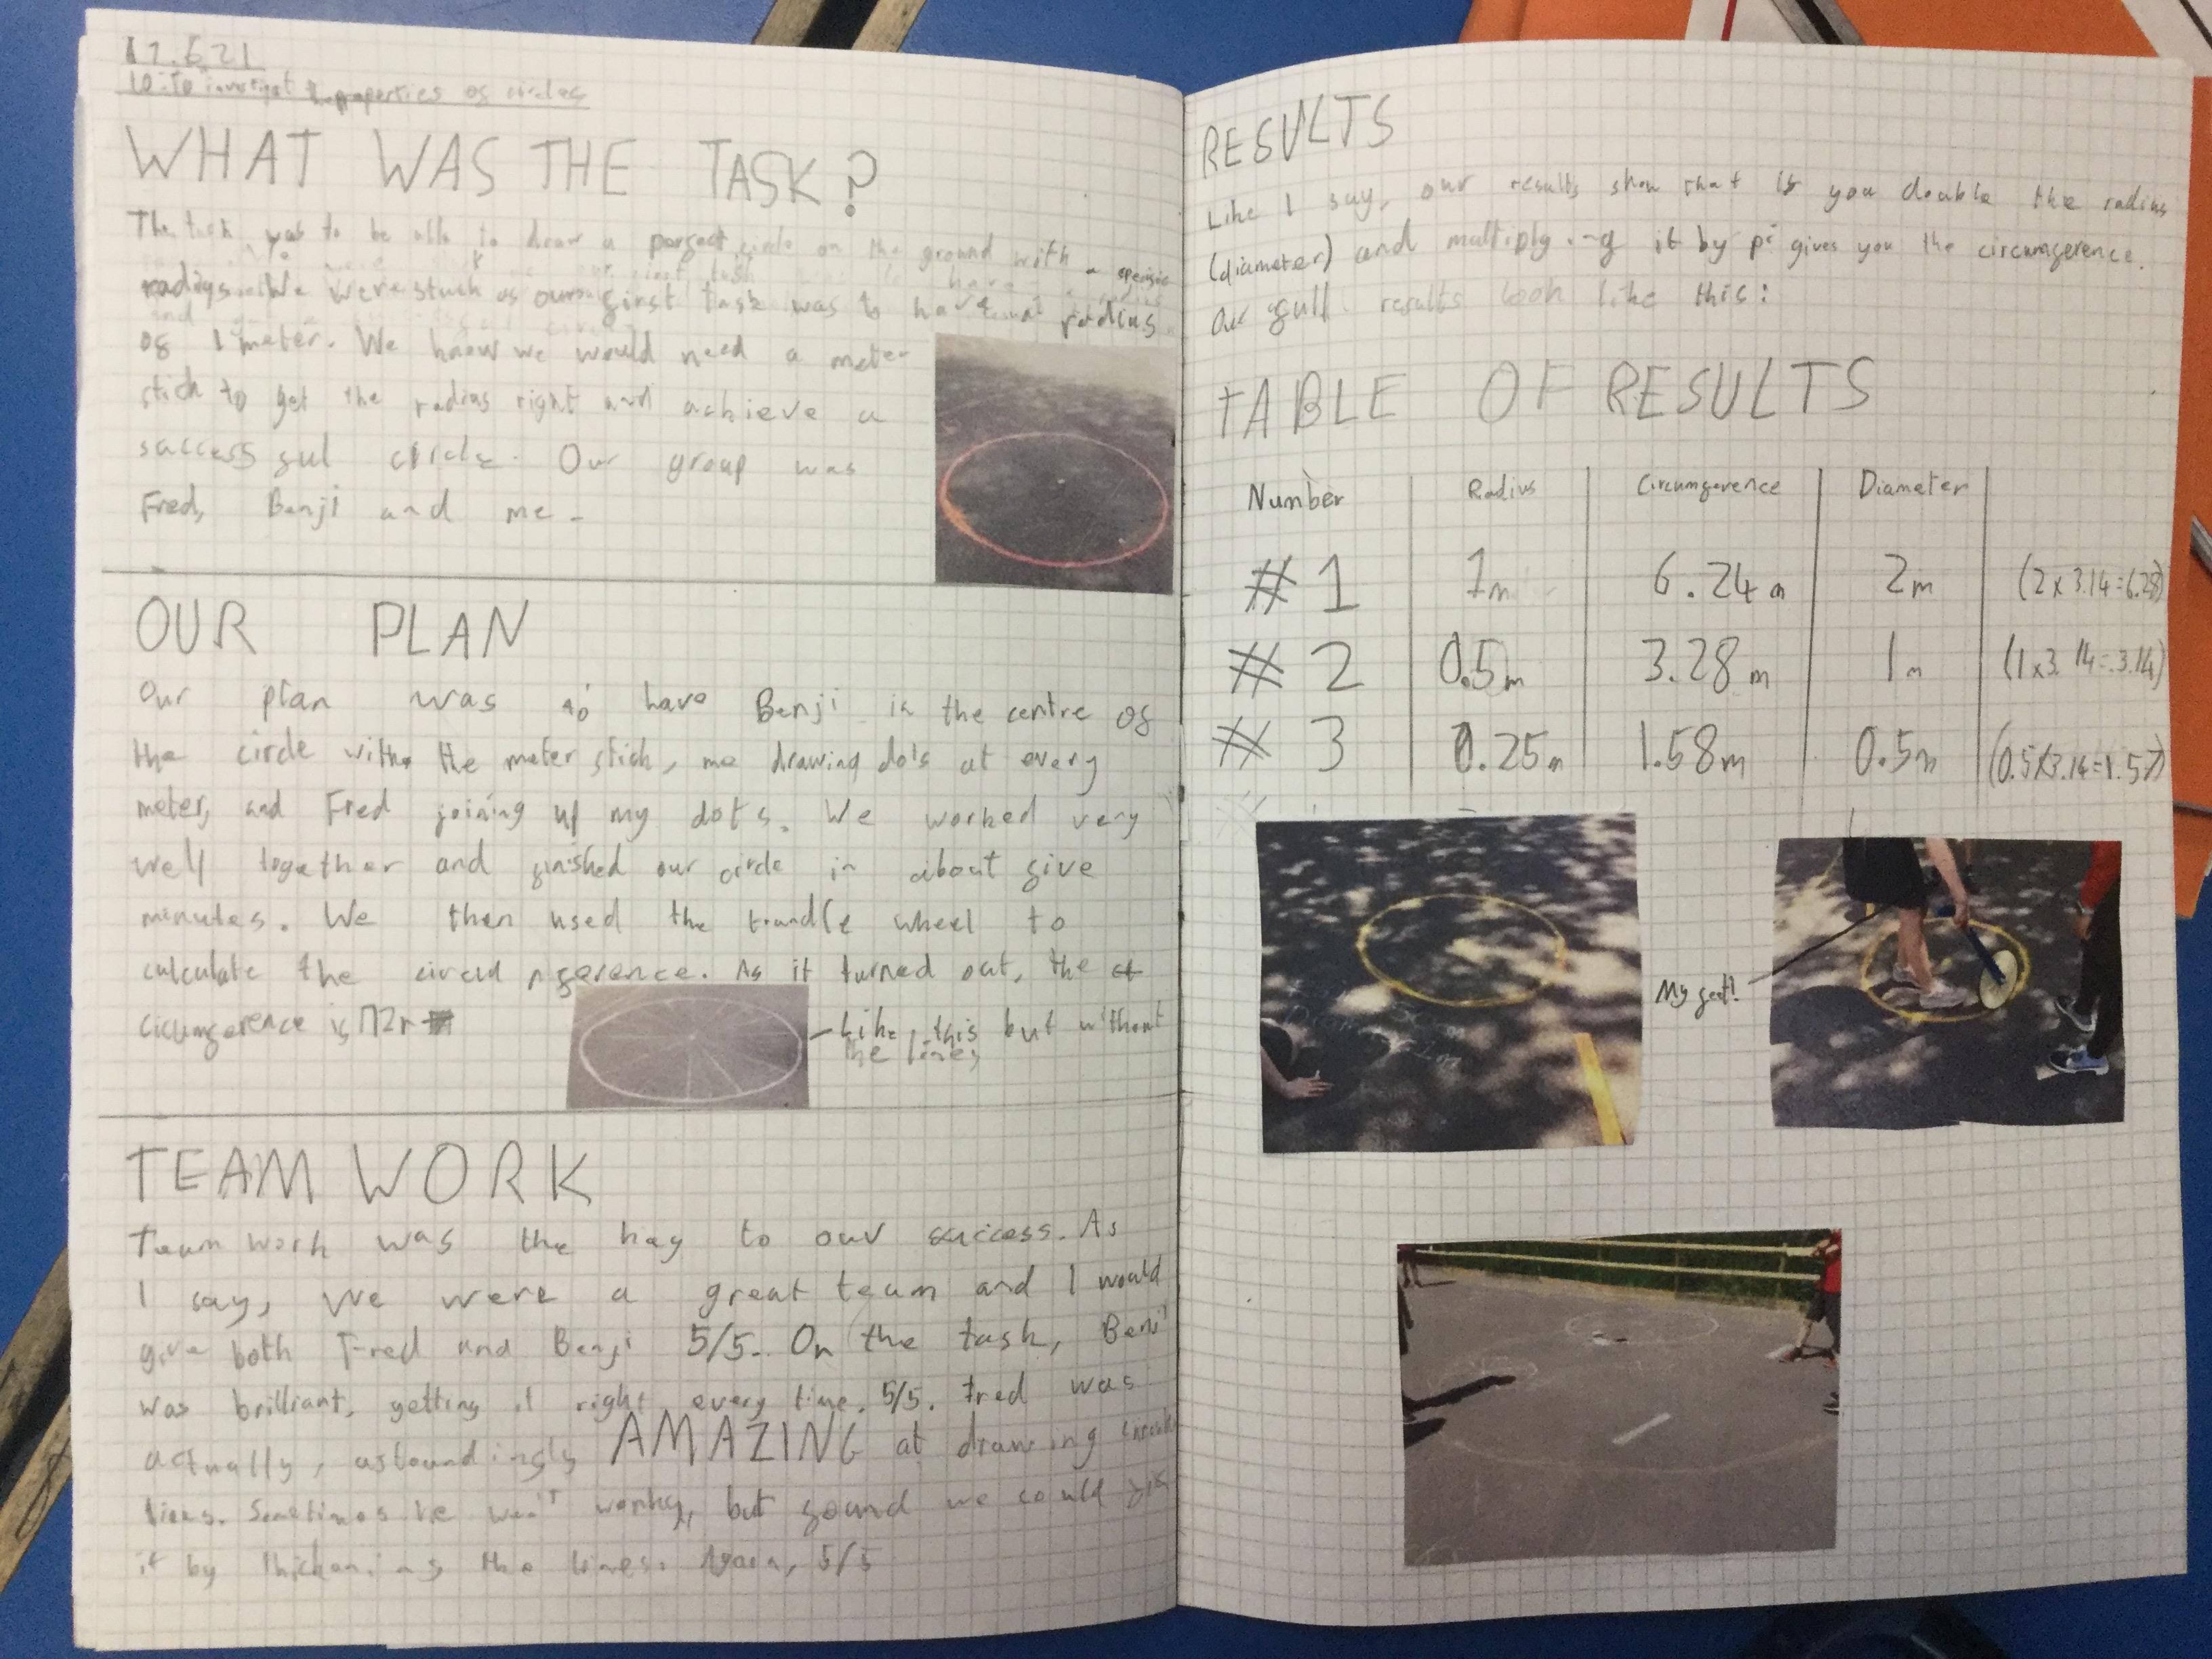 17.6.21
LO: To investigat the properties of circles
WHAT WAS THE TASK?
The task was to be able to draw a perfect circle on the ground with a specific
radius. We were stuck as our first task was to have a radius
of 1 meter. We knew we would need a meter
stick to get the radius right and achieve a
successful circle. Our group was
Fred, Benji and me.
OUR PLAN
Our plan was to have Benji in the centre of
the circle with the meter stick, me drawing dots at every
meter, and Fred joining up my dots. We worked very
well together and finished our circle in about five
minutes. We then used the trundle wheel to
calculate the circumference. As it turned out, the
cicumference is π2r
Like this but without
the lines
TEAM WORK
Team work was the key to our success. As
I say, we were a great team and I would
give both Fred and Benji 5/5. On the task, Benji
was brilliant, getting it right every time. 5/5. Fred was
actually, astoundingly AMAZING at drawing
lines. Sometimes he went wonky, but found we could fix
it by thickening the lines. Again, 5/5
RESULTS
Like I say, our results show that if you double the radius
(diameter) and multiply-ing it by pi gives you the circumference.
Our full results look like this:
TABLE OF RESULTS
Number Radius Circumference Diameter
#1 1m 6.24m 2m (2x3.14=6.28)
#2 0.5m 3.28m 1m (1x3.14=3.14)
#3 0.25m 1.58m 0.5m (0.5x3.14=1.57)
My feet!